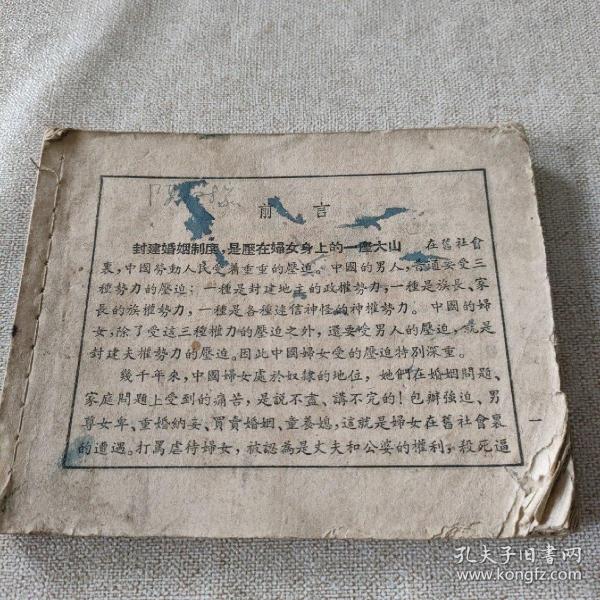 前言
封建婚姻制度，是壓在婦女身上的一座大山 在舊社會
裏，中國勞動人民受着重重的壓迫。中國的男人，普遍要受三
種勢力的壓迫：一種是封建地主的政權勢力，一種是族長、家
長的族權勢力，一種是各種迷信神怪的神權勢力。中國的婦
女，除了受這三種權力的壓迫之外，還要受男人的壓迫，就是
封建夫權勢力的壓迫。因此中國婦女受的壓迫特別深重。
幾千年來，中國婦女處於奴隸的地位，她們在婚姻問題、
家庭問題上受到的痛苦，是說不盡、講不完的！包辦強迫、男
尊女卑、重婚納妾、買賣婚姻、童養媳，這就是婦女在舊社會裏
的遭遇。打罵虐待婦女，被認為是丈夫和公婆的權利，殺死逼
一
孔夫子旧書网
www.kongfz.com